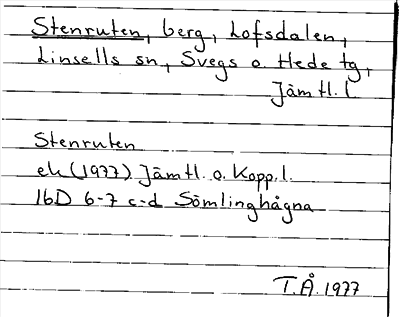 Stenruten, berg, Lofsdalen,
Linsells sn, Svegs o. Hede tg,
Jämtl. l.
Stenruten
ek (1977) Jämtl. o. Kopp. l.
16D 6-7 c-d Sömlinghågna
T.Å. 1977